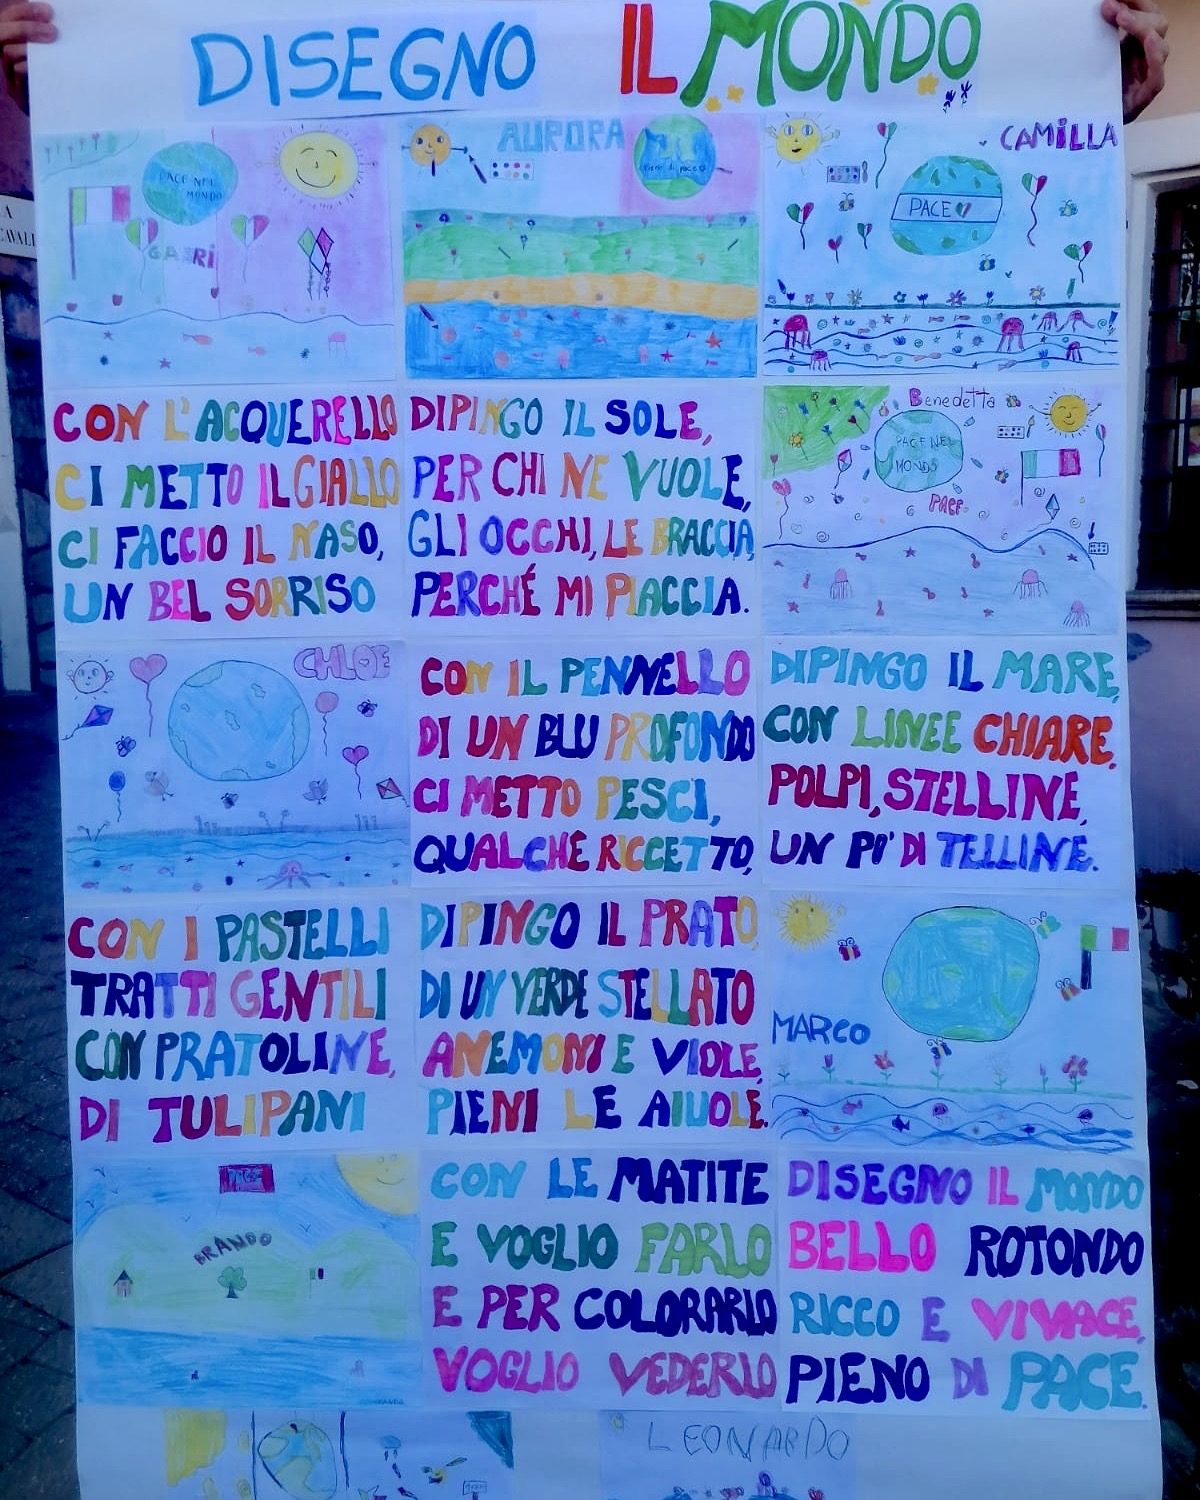 DISEGNO IL MONDO
PACE NEL
MONDO
GAIRI
AURORA
CAMILLA
PACE
CON L'ACQUERELLO DIPINGO IL SOLE,
CI METTO IL GIALLO PER CHI NE VUOLE,
CI FACCIO IL NASO, GLI OCCHI, LE BRACCIA,
UN BEL SORRISO PERCHÉ MI PIACCIA.
Benedetta
PACE NEL
MONDO
PACE
CHLOE
CON IL PENNELLO DIPINGO IL MARE,
DI UN BLU PROFONDO CON LINEE CHIARE,
CI METTO PESCI, POLPI, STELLINE,
QUALCHE RICCETTO, UN PO' DI TELLINE.
CON I PASTELLI DIPINGO IL PRATO,
TRATTI GENTILI DI UN VERDE STELLATO
CON PRATOLINE, ANEMONI E VIOLE,
DI TULIPANI PIENI LE AIUOLE.
MARCO
PACE
BRANDO
CON LE MATITE DISEGNO IL MONDO
E VOGLIO FARLO BELLO ROTONDO
E PER COLORARLO RICCO E VIVACE,
VOGLIO VEDERLO PIENO DI PACE.
LEONARDO